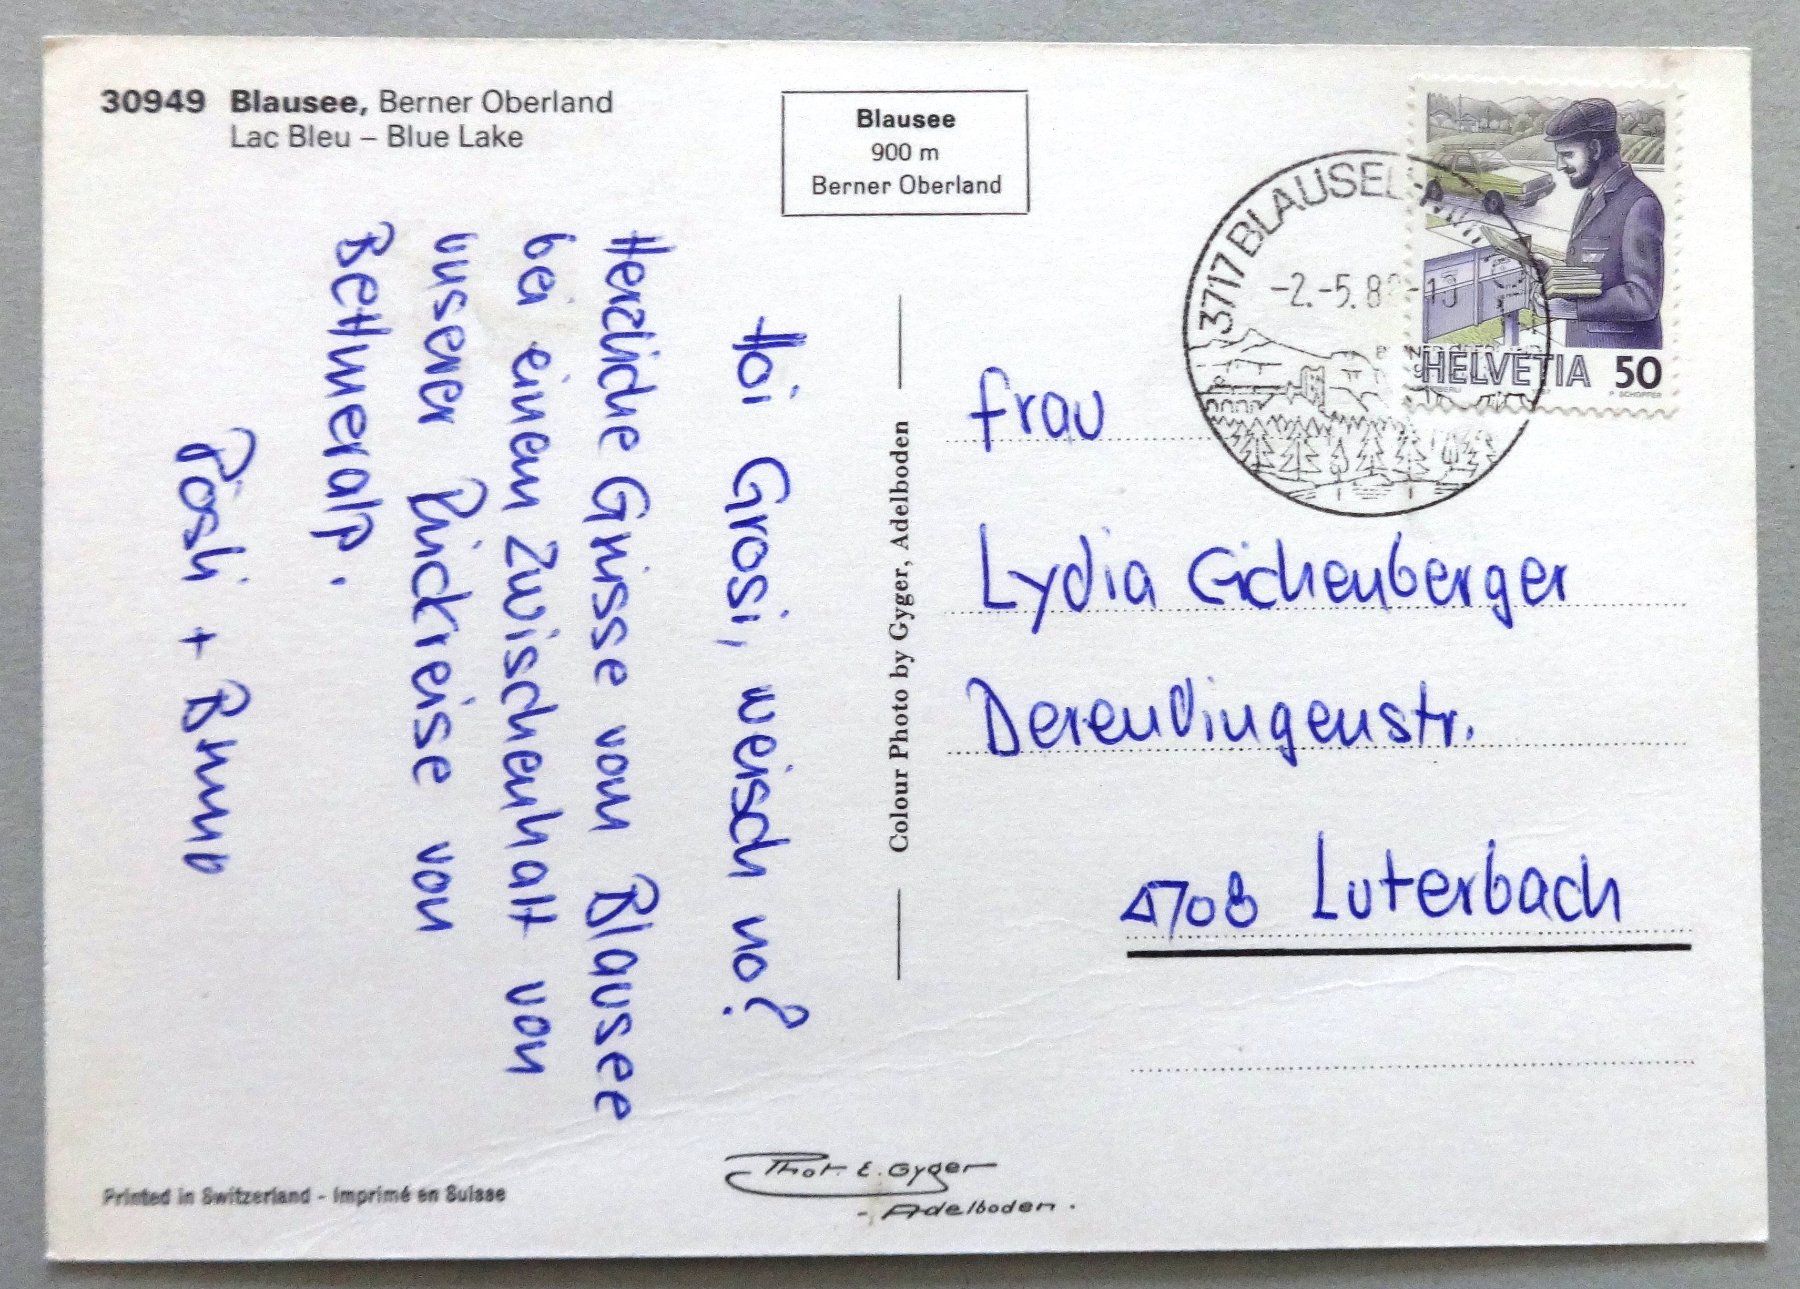 30949 Blausee, Berner Oberland
Lac Bleu – Blue Lake
Blausee
900 m
Berner Oberland
Hoi Grosi, weisch no?
Herzliche Grüsse vom Blausee
bei einem Zwischenhalt von
unserer Rückreise von
Bettmeralp.
Röshi + Bruno
Colour Photo by Gyger, Adelboden
3717 BLAUSEE
-2.-5.8
HELVETIA 50
P. SCHOPFER
Frau
Lydia Eichenberger
Derendingenstr.
4708 Luterbach
Phot. E. Gyger
- Adelboden.
Printed in Switzerland - Imprimé en Suisse